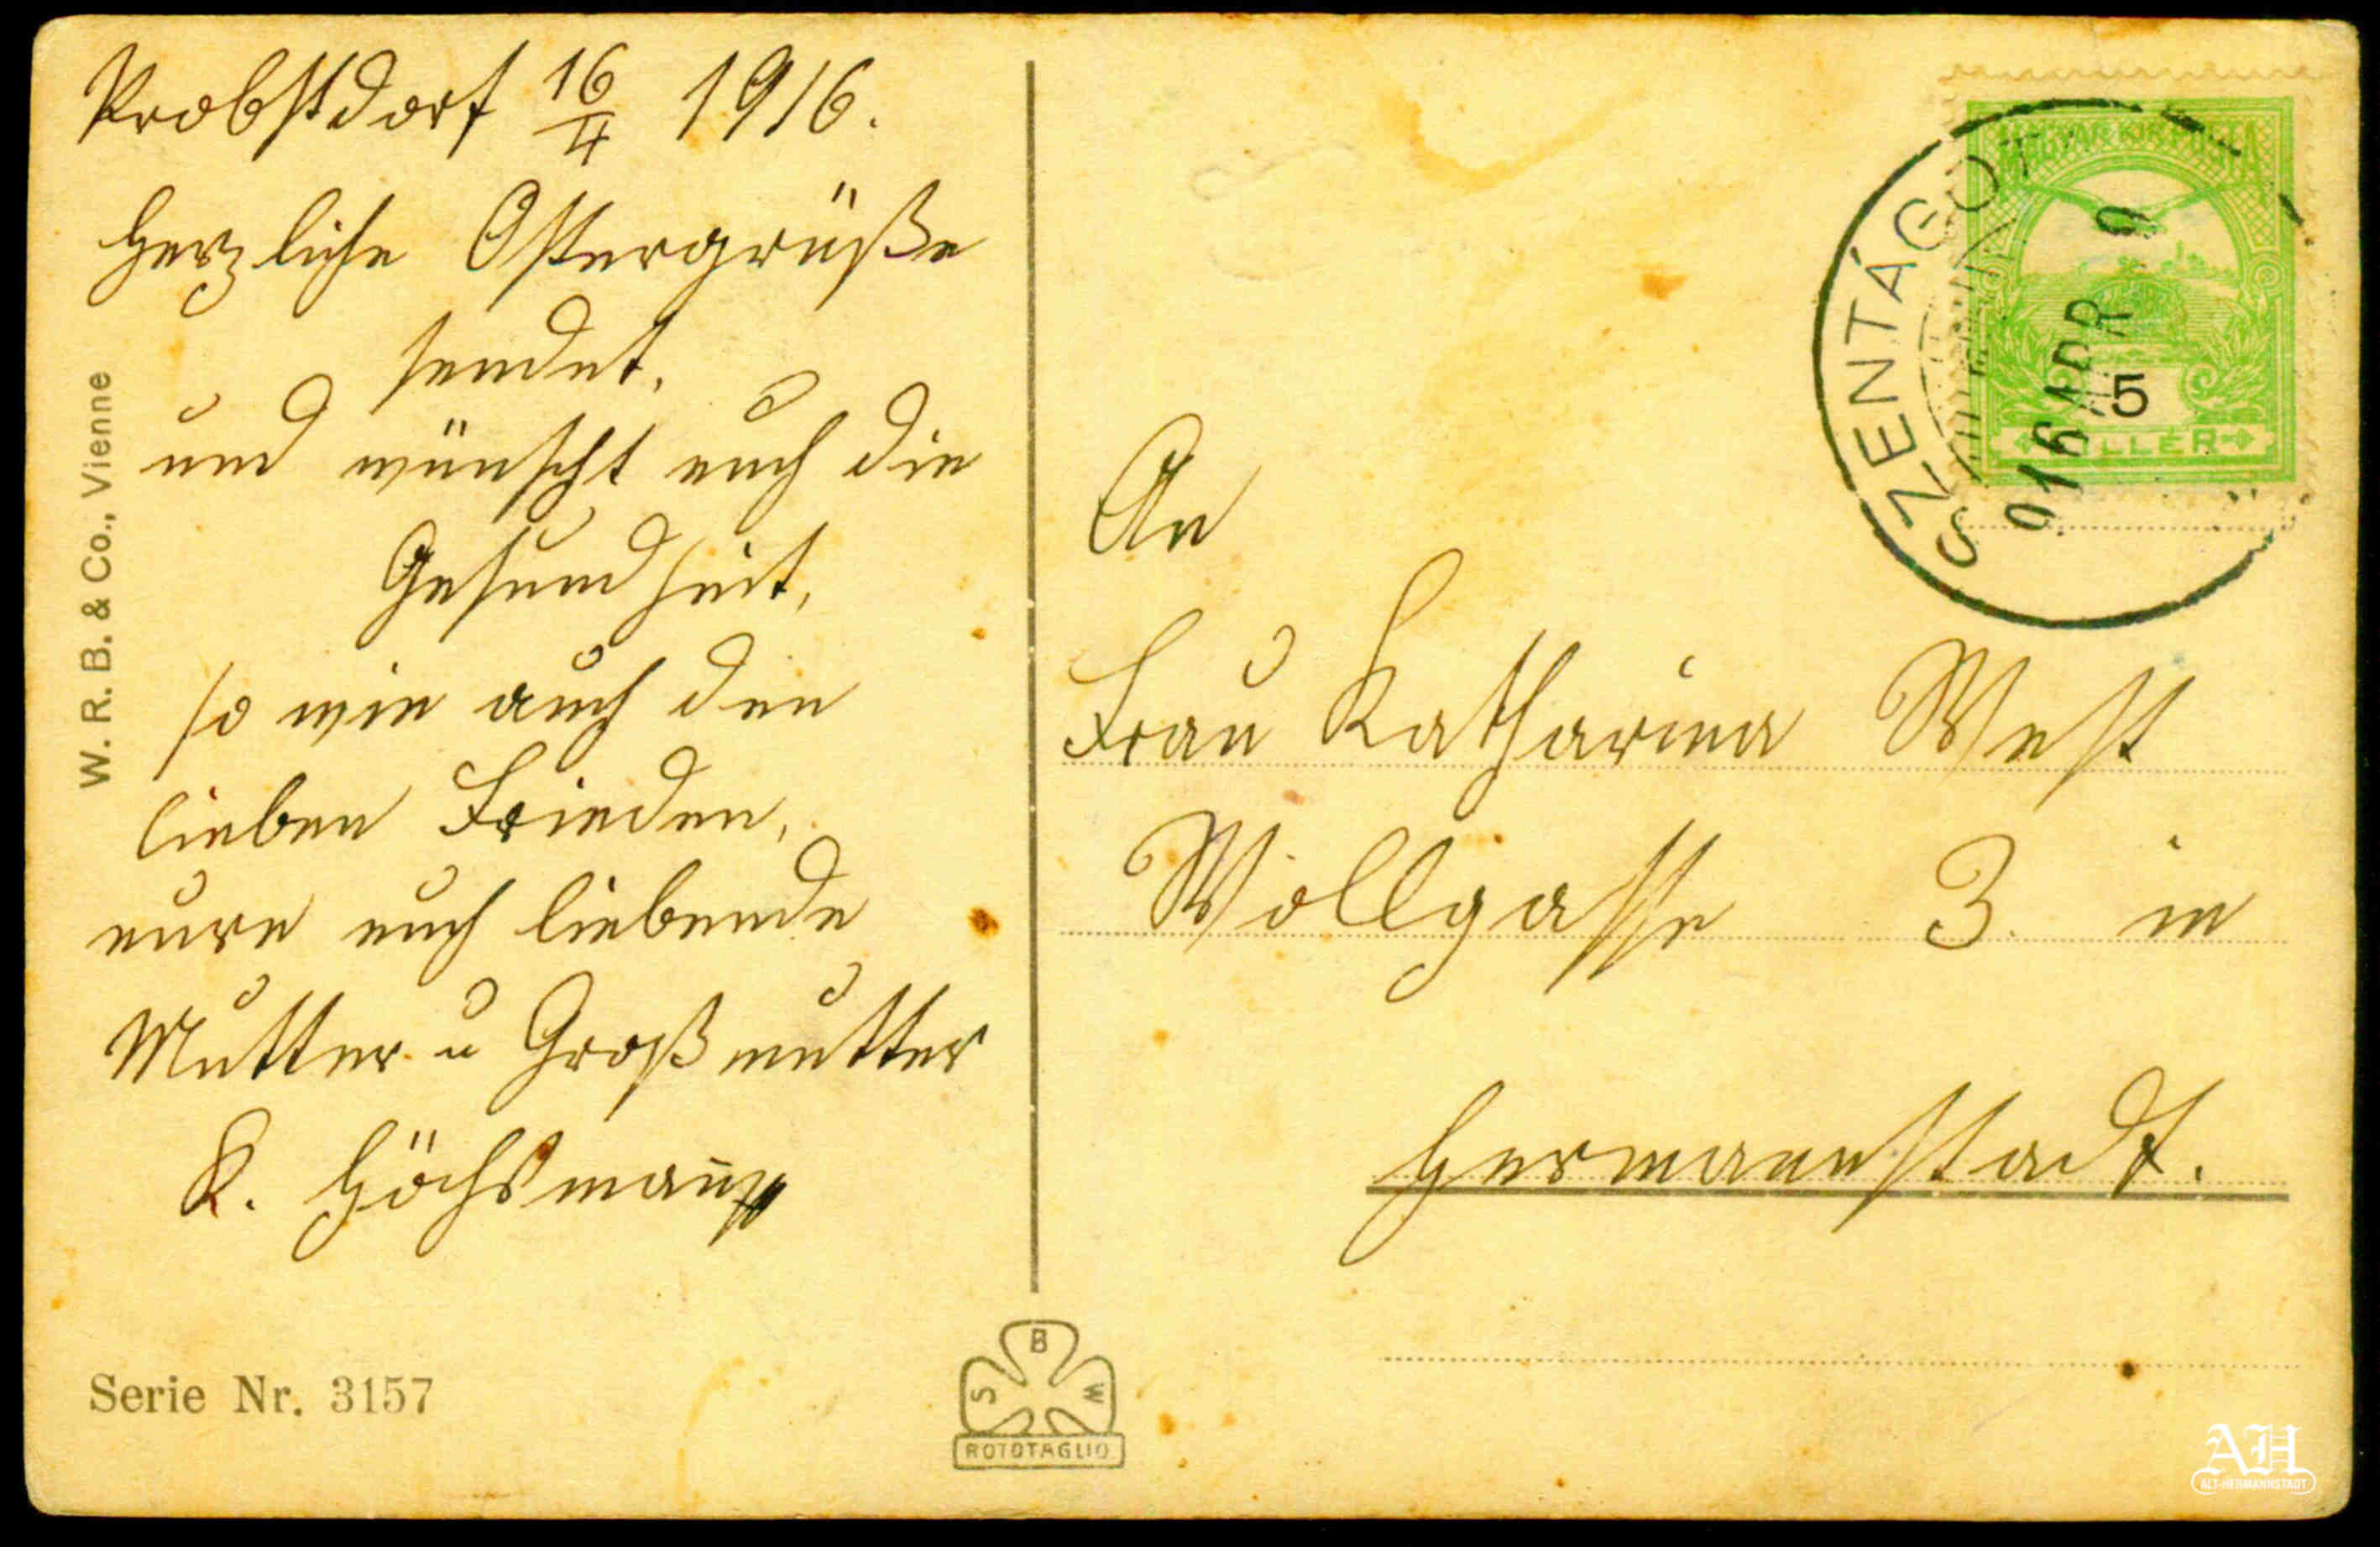 Probstdorf 16/4 1916.
Herzliche Ostergrüße
sendet,
und wünscht euch die
Gesundheit,
so wie auch den
lieben Frieden,
eure euch liebende
Mutter u Großmutter
K. Höchsmann
W. R. B. & Co., Vienne
Serie Nr. 3157
S B W
ROTOTAGLIO
MAGYAR KIR. POSTA
5
FILLÉR
SZENTÁGOTA
916 APR
An
Frau Katharina West
Wollgasse 3. in
Hermannstadt.
AH
ALT-HERMANNSTADT